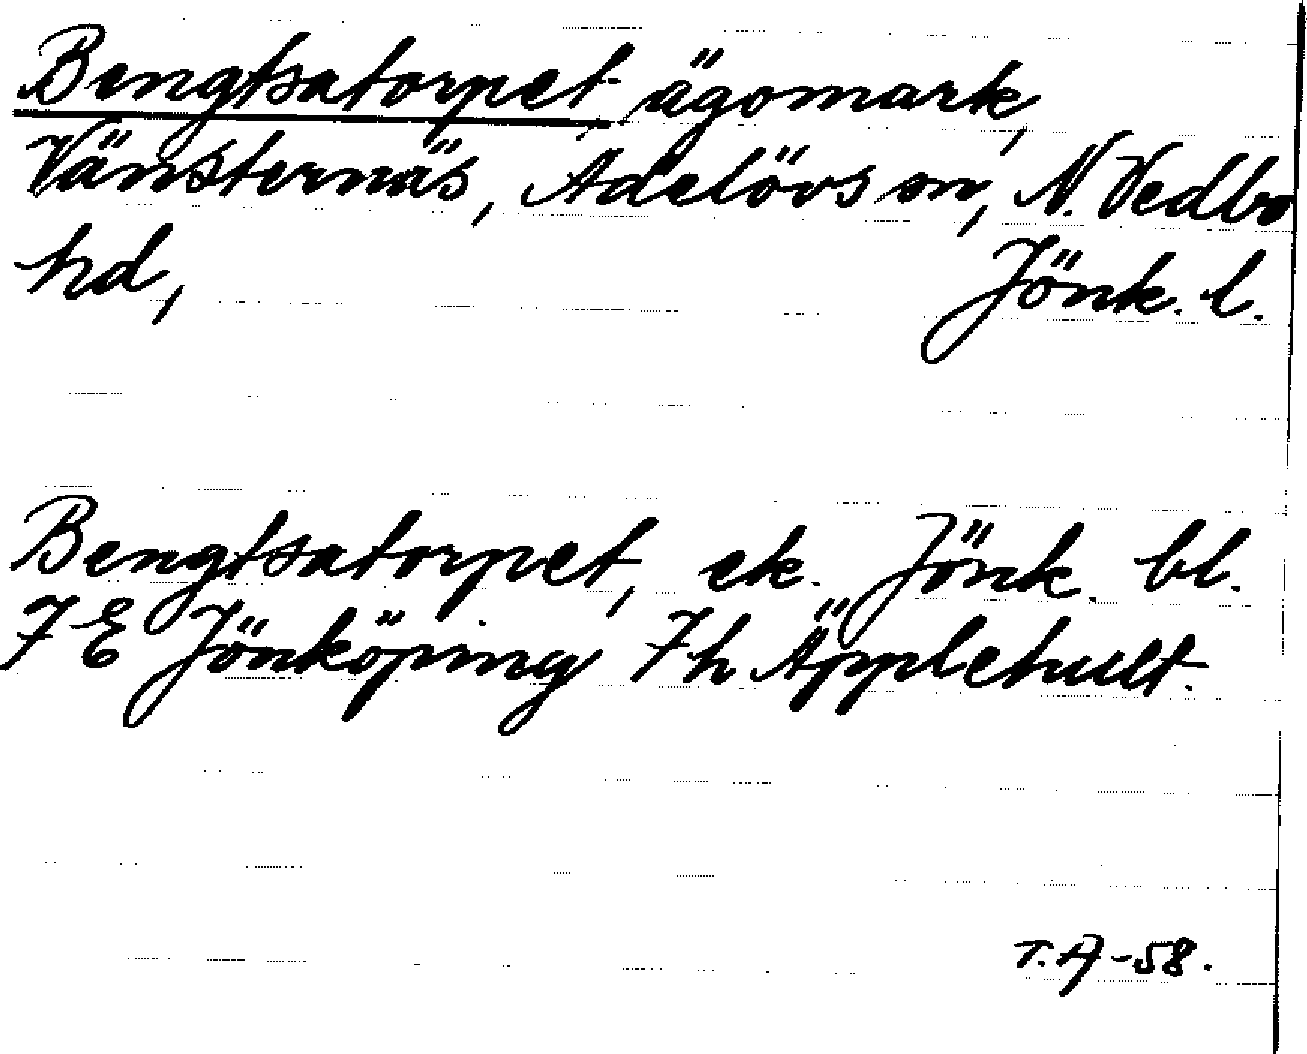 Bengtsatorpet ägomark,
Vänsternäs, Adelövs sn, N. Vedbo
hd, Jönk. l.
Bengtsatorpet, ek. Jönk. bl.
7 E Jönköping 7h Äpplehult.
T.A-58.